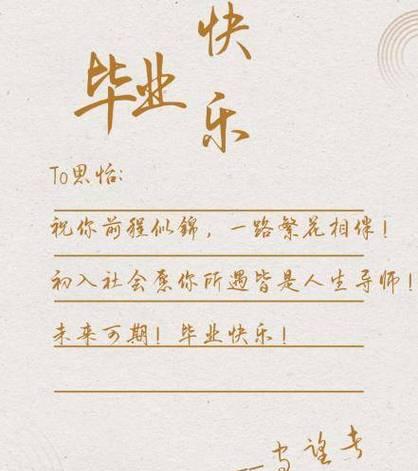 毕业快乐
To思怡:
祝你前程似錦，一路繁花相伴！
初入社会愿你所遇皆是人生导师！
未来可期！毕业快乐！